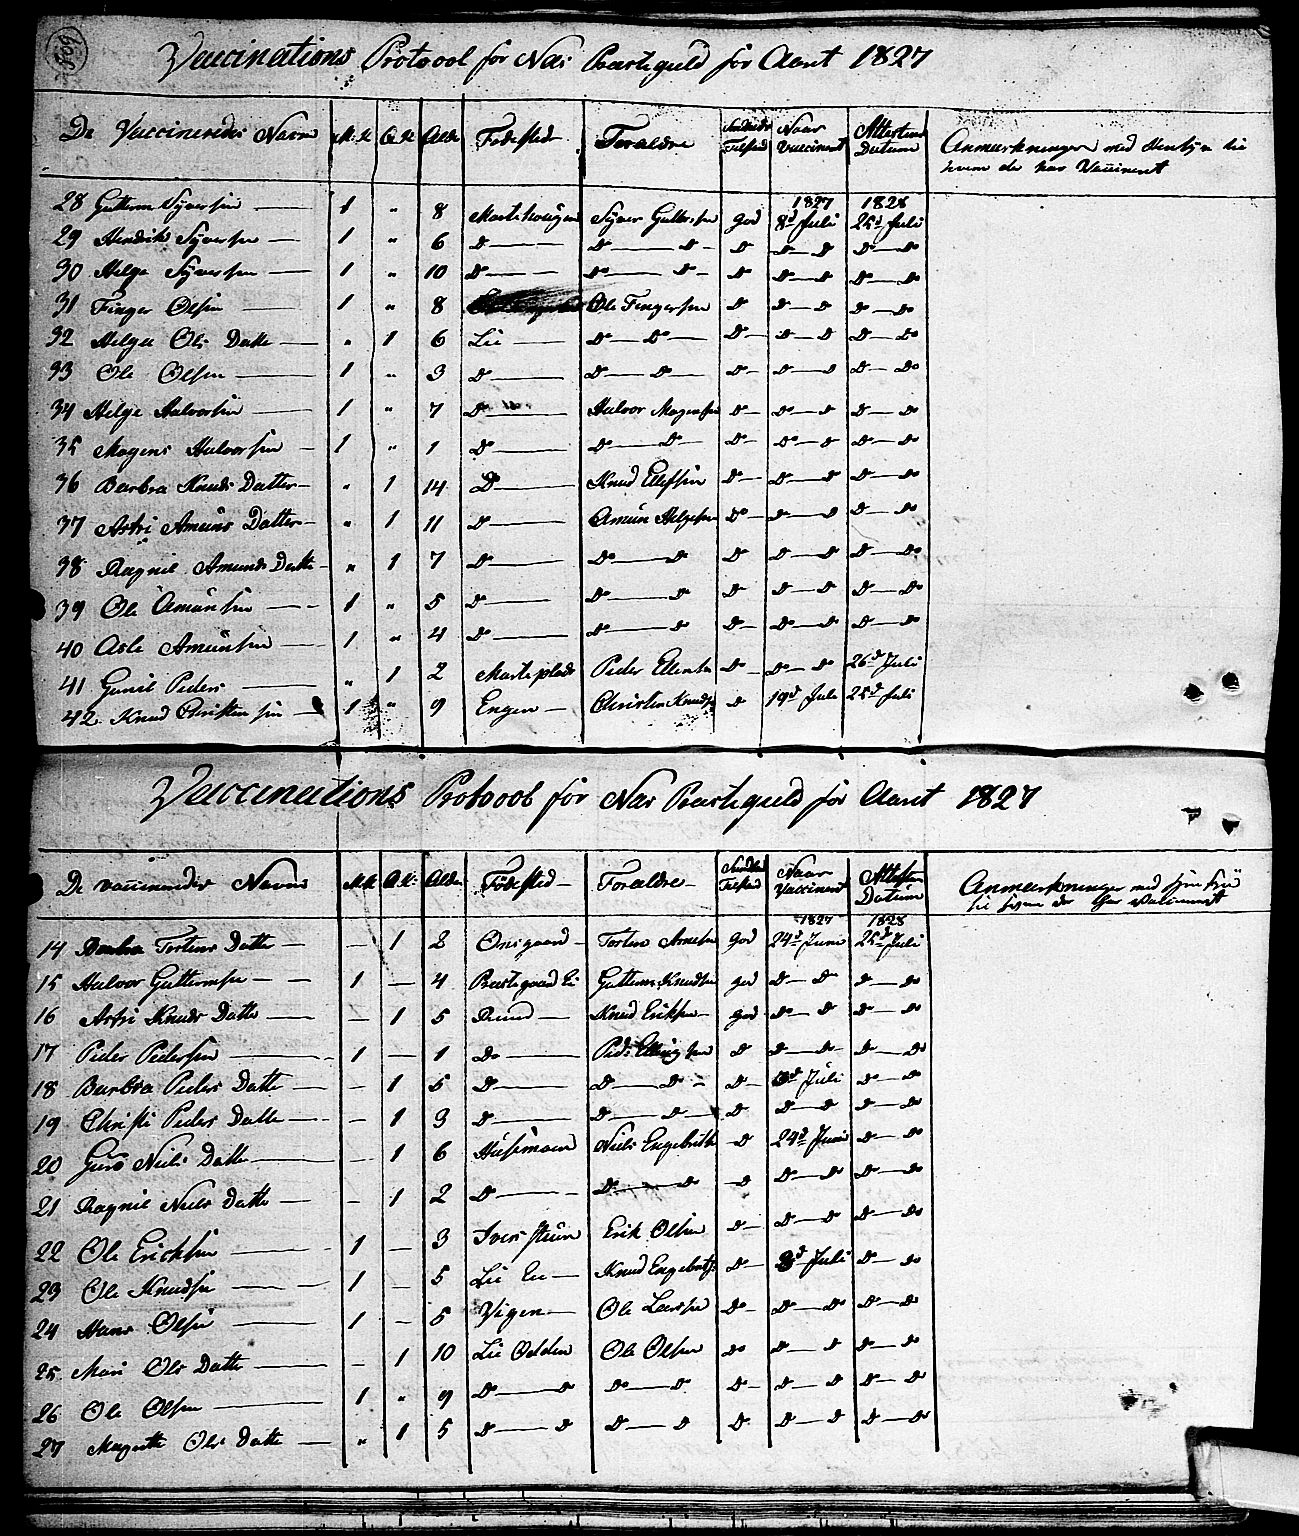 Vaccinations Protocol for Næs Præstegield for Aaret 1827
De Vaccineredes Navne M.K. Q.K. Alder Fødested Forældre Tilstand Naar Vaccineret Attestens Datum Anmærkninger med Hensyn til
hvem der har Vaccineret
1827 1828
28 Guttorm Syversen — 1 " 8 Syver Guttormsen god 8d Juli 25d Juli
29 Hendrik Syversen — 1 " 6 do — do — do do do — do do — do
30 Helge Syversen — 1 " 10 do — do — do do do — do do — do
31 Finger Olsen — 1 " 8 Ole Fingersen do do — do do — do
32 Helga Ols Datte — " 1 6 Lie — do — do do do — do do — do
33 Ole Olsen — 1 " 3 do — do — do do do — do do — do
34 Helge Halvorsen — 1 " 7 do — Halvor Mogensen do do — do do — do
35 Mogens Halvorsen — 1 " 1 do — do — do do do — do do — do
36 Barbra Knuds Datter — " 1 14 do — Knud Ellefsen do do — do do — do
37 Astri Amuns Datter — " 1 11 do — Amun Helgesen do do — do do — do
38 Ragnil Amunds Datte — " 1 7 do — do — do do do — do do — do
39 Ole Amunsen — 1 " 5 do — do — do do do — do do — do
40 Asle Amunsen — 1 " 4 do — do — do do do — do do — do
41 Gunil Peders — " 1 2 Peder do do — do 26d Juli
42. Knud Christensen — 1 " 9 Engen — Christen Knuds do 19d Juli 25d Juli
Vaccinations Protocol for Næs Præstegield for Aaret 1827
De vaccineredes Navne M.K. Q.K. Alder Fødested — Forældre — Tilstand Naar Vaccineret Attestens Datum Anmærkninger med
til hvem der har Vaccineret
1827 1828
14 Barbra Torstens Datte — — 1 2 Torsten Arnesen god 24d Juni 25d Juli
15 Halvor Guttormsen — 1 — 4 Guttorm Knudsen god do — do do — do
16 Astri Knuds Datte — — 1 5 Rund — Knud Eriksen — god do — do do — do
17 Peder Pedersen — 1 — 1 do — Peder do do — do do — do
18 Barbra Peders Datte — — 1 5 do — do — do do Juli do — do
19 Christi Peders Datte — — 1 3 do — do — do do do — do do — do
20 Guro Niels Datte — — 1 6 Niels do 24d Juni do — do
21 Ragnil Niels Datte — — 1 2 do — do — do do do — do do — do
22 Ole Ericksen — 1 — 3 Erik Olsen do do — do do — do
23 Ole Knudsen — 1 — 5 Lie Eie — Knud Engebrets: do 8d Juli do — do
24 Hans Olsen — 1 — 5 Vigen — Ole Larsen do do — do do — do
25 Mari Ols Datte — — 1 10 Lie Odden Ole Olsen do do — do do — do
26 Ole Olsen — 1 " 9 do — do do — do do do — do do — do
27 Magrette Ols Datte — " 1 5 do — do do — do do do — do do — do